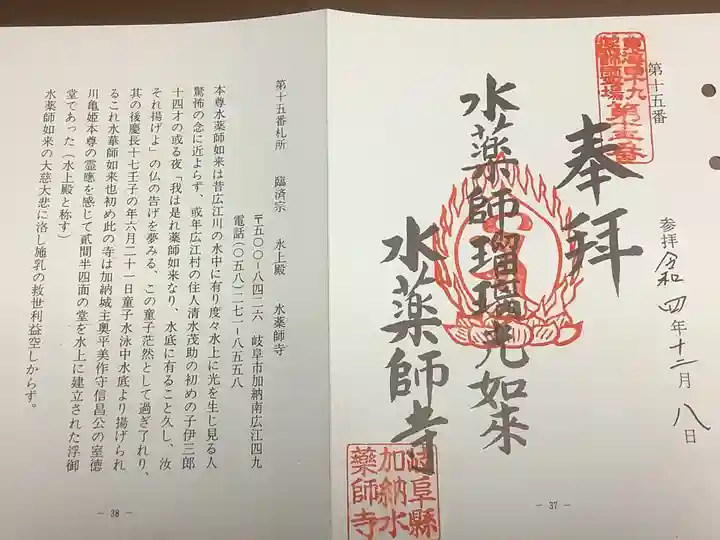 第十五番
東海四十九
薬師霊場
第十五番
奉拝
水薬師瑠璃光如来
水薬師寺
参拝 令和四年十二月八日
岐阜縣
加納水
薬師寺
― 37 ―
第十五番札所 臨済宗 水上殿 水薬師寺
〒五〇〇-八四二六 岐阜市加納南広江四九
電話(〇五八)二七一-八五五八
本尊水薬師如来は昔広江川の水中に有り度々水上に光を生じ見る人
驚怖の念に近よらず、或年広江村の住人清水茂助の初めの子伊三郎
十四才の或る夜「我は是れ薬師如来なり、水底に有ること久し、汝
それ揚げよ」の仏の告げを夢みる、この童子茫然として過ぎ了れり、
其の後慶長十七壬子の年六月二十一日童子水泳中水底より揚げられ
るこれ水薬師如来也初め此の寺は加納城主奥平美作守信昌公の室徳
川亀姫本尊の霊應を感じて貳間半四面の堂を水上に建立された浮御
堂であった(水上殿と称す)
水薬師如来の大慈大悲に洛し施乳の救世利益空しからず。
― 38 ―